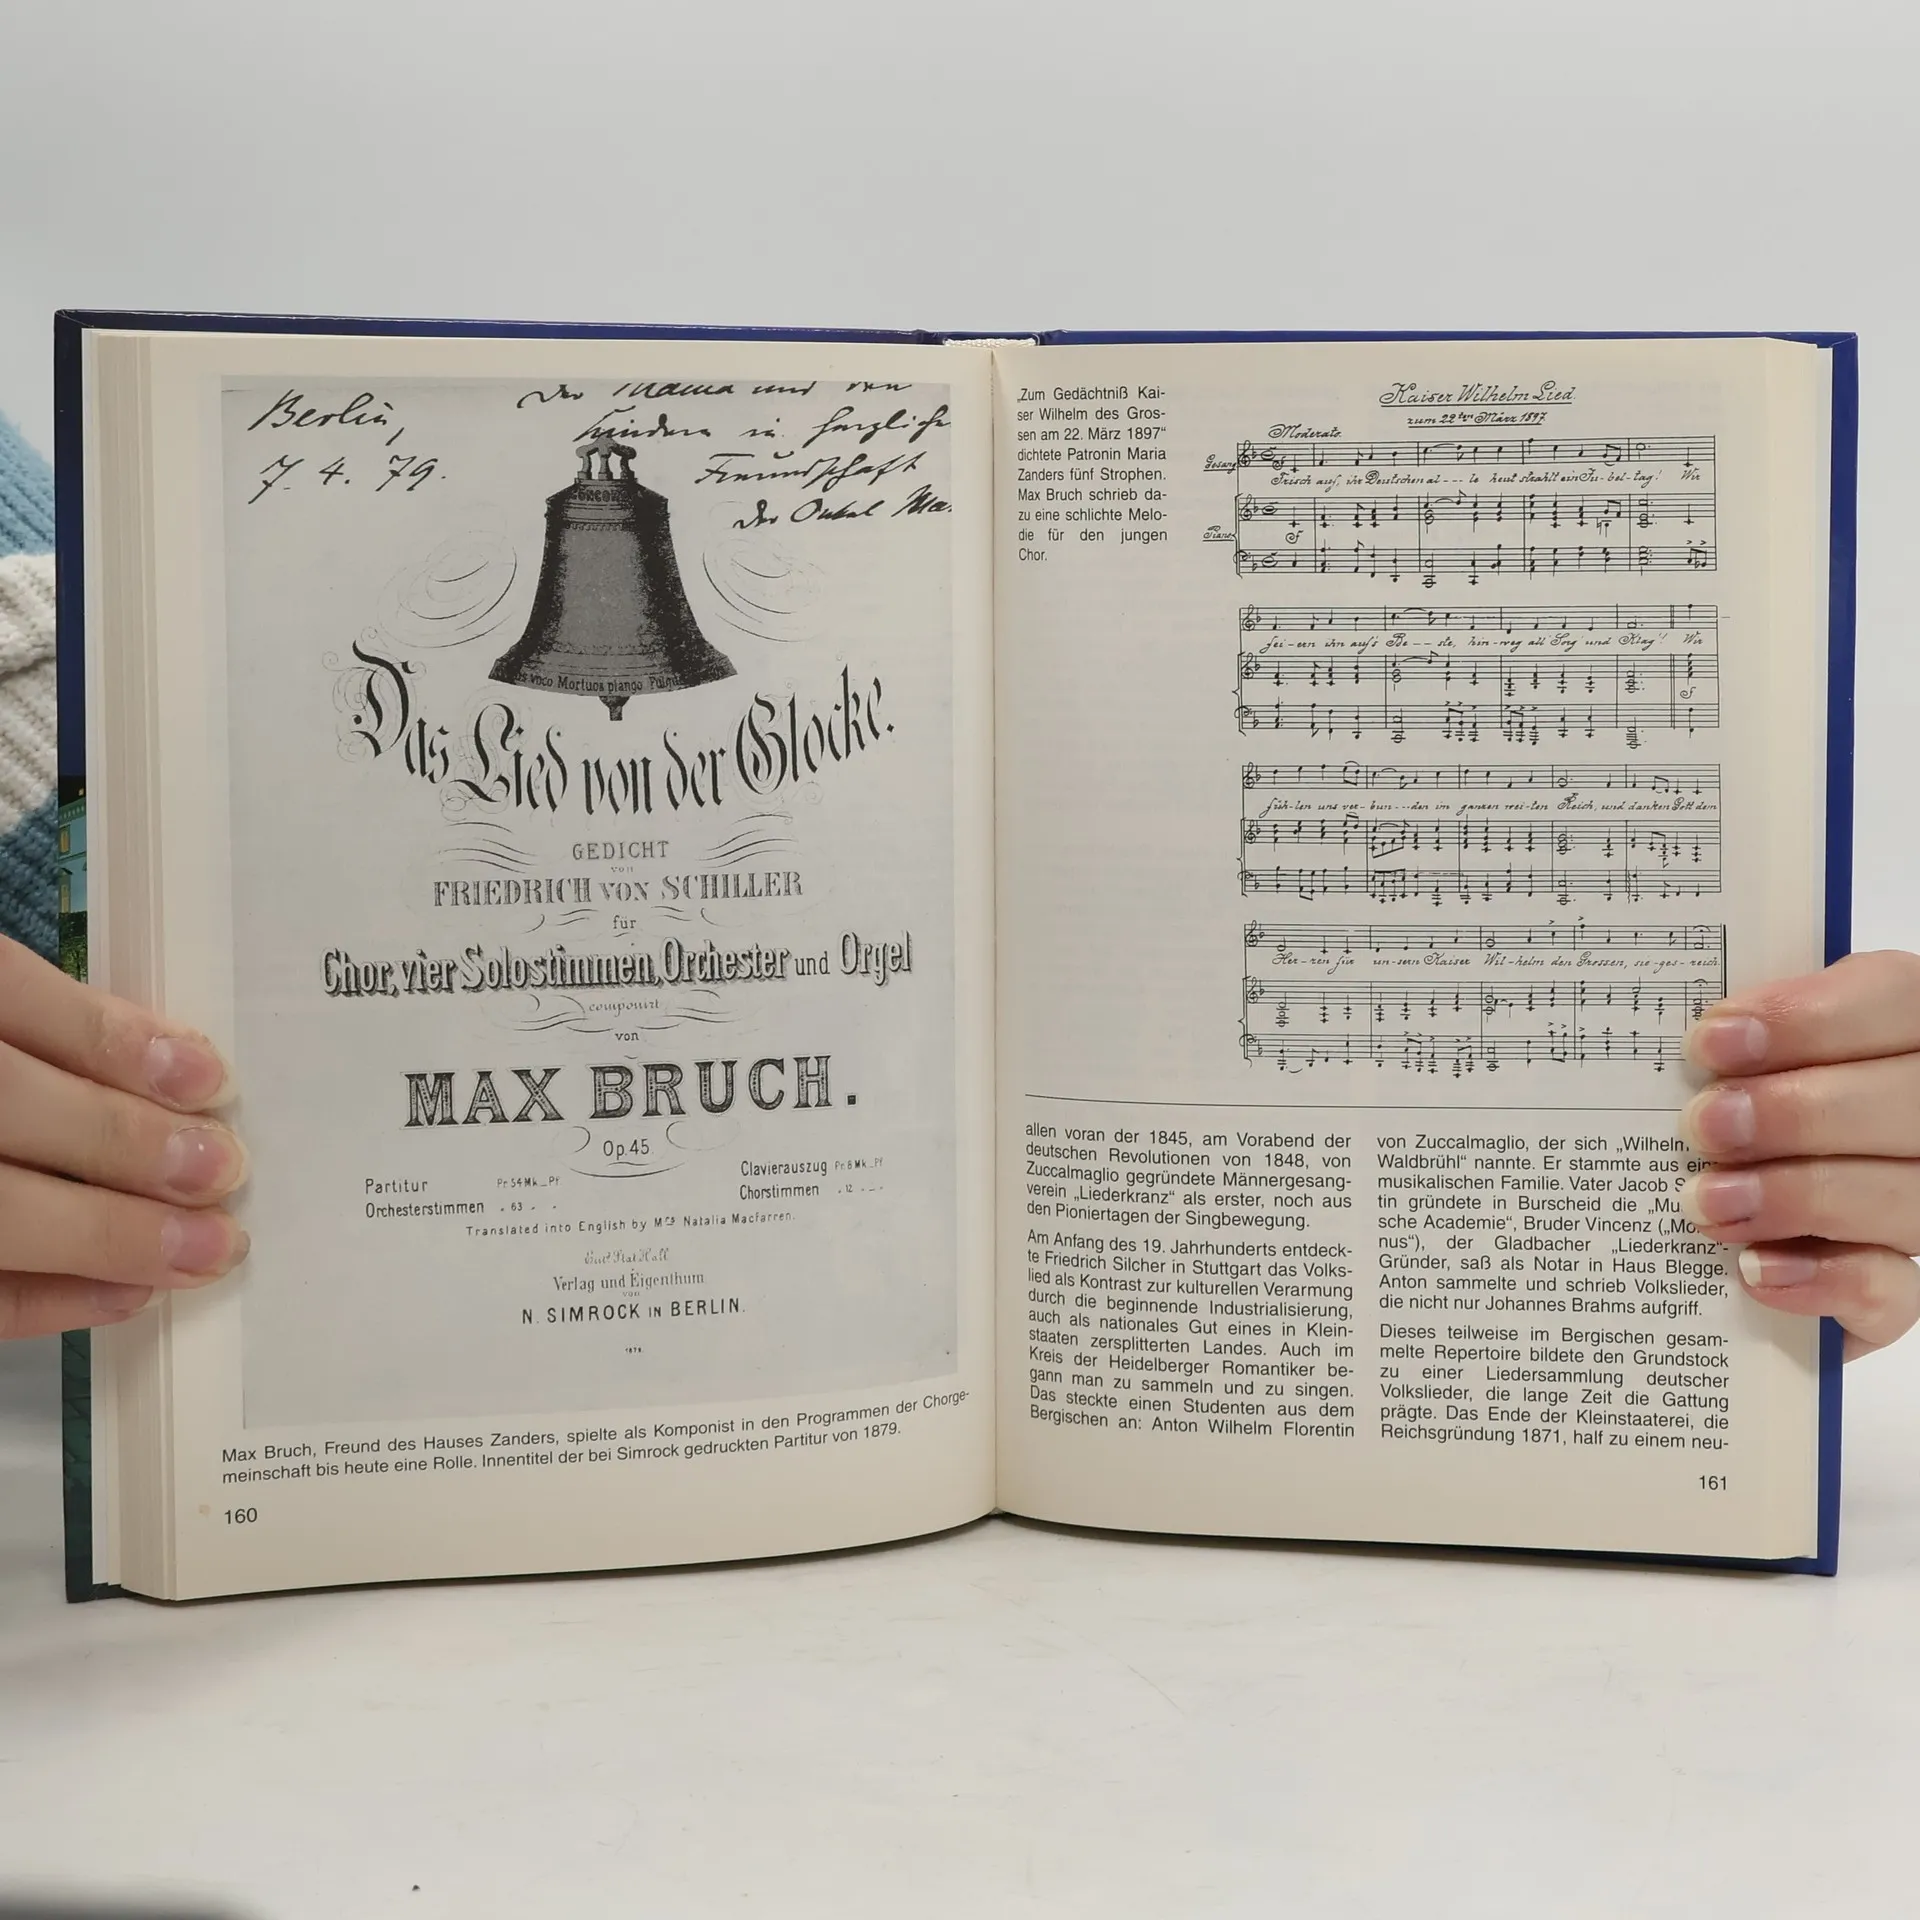 Berlin,
7. 4. 79.
Der Mama und den
Kindern in herzlicher
Freundschaft
der Onkel Max
CONCOR
os voco Mortuos plango Fulgu
Das Lied von der Glocke.
GEDICHT
von
FRIEDRICH VON SCHILLER
für
Chor, vier Solostimmen, Orchester und Orgel
componirt
von
MAX BRUCH.
Op. 45.
Partitur Pr. 54 Mk._Pf.
Orchesterstimmen " 63 " "
Clavierauszug Pr. 8 Mk._Pf
Chorstimmen " 12 " _ "
Translated into English by Mrs Natalia Macfarren.
Ent. Stat. Hall
Verlag und Eigenthum
von
N. SIMROCK IN BERLIN.
1879.
Max Bruch, Freund des Hauses Zanders, spielte als Komponist in den Programmen der Chorge-
meinschaft bis heute eine Rolle. Innentitel der bei Simrock gedruckten Partitur von 1879.
160
„Zum Gedächtniß Kai-
ser Wilhelm des Gros-
sen am 22. März 1897“
dichtete Patronin Maria
Zanders fünf Strophen.
Max Bruch schrieb da-
zu eine schlichte Melo-
die für den jungen
Chor.
Kaiser Wilhelm Lied.
zum 22ten März 1897.
Moderato.
Gesang
Frisch auf, ihr Deutschen al---le heut strahlt ein Ju-bel-tag! Wir
Piano
fei-ern ihn aufs Be---ste, hin-weg all Sorg und Klag! Wir
füh-len uns ver-bun---den im ganzen wei-ten Reich, und danken Gott dem
Her-ren für un-sern Kaiser Wil-helm den Grossen, sie-ges-reich.
allen voran der 1845, am Vorabend der
deutschen Revolutionen von 1848, von
Zuccalmaglio gegründete Männergesang-
verein „Liederkranz“ als erster, noch aus
den Pioniertagen der Singbewegung.
Am Anfang des 19. Jahrhunderts entdeck-
te Friedrich Silcher in Stuttgart das Volks-
lied als Kontrast zur kulturellen Verarmung
durch die beginnende Industrialisierung,
auch als nationales Gut eines in Klein-
staaten zersplitterten Landes. Auch im
Kreis der Heidelberger Romantiker be-
gann man zu sammeln und zu singen.
Das steckte einen Studenten aus dem
Bergischen an: Anton Wilhelm Florentin
von Zuccalmaglio, der sich „Wilhelm
Waldbrühl“ nannte. Er stammte aus ein
musikalischen Familie. Vater Jacob S
tin gründete in Burscheid die „Mu
sche Academie“, Bruder Vincenz („Mo
nus“), der Gladbacher „Liederkranz“-
Gründer, saß als Notar in Haus Blegge.
Anton sammelte und schrieb Volkslieder,
die nicht nur Johannes Brahms aufgriff.
Dieses teilweise im Bergischen gesam-
melte Repertoire bildete den Grundstock
zu einer Liedersammlung deutscher
Volkslieder, die lange Zeit die Gattung
prägte. Das Ende der Kleinstaaterei, die
Reichsgründung 1871, half zu einem neu-
161